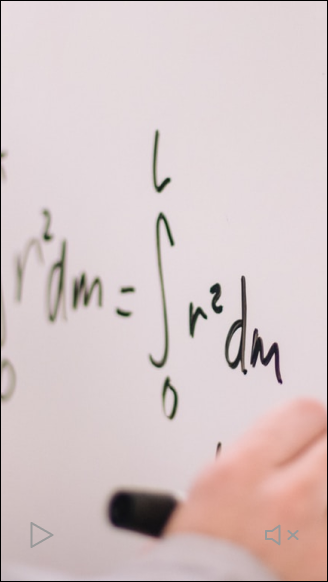 ∫₀ r²dm = ∫₀ᴸ r²dm